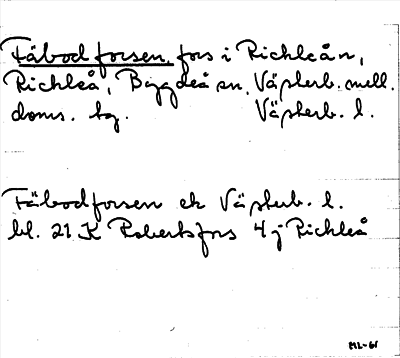 Fäbodforsen, fors i Rickleån,
Rickleå, Bygdeå sn, Västerb. mell.
doms. hg. Västerb. l.
Fäbodforsen ek Västerb. l.
bl. 21 K Robertsfors 4 j Rickleå
ML-61